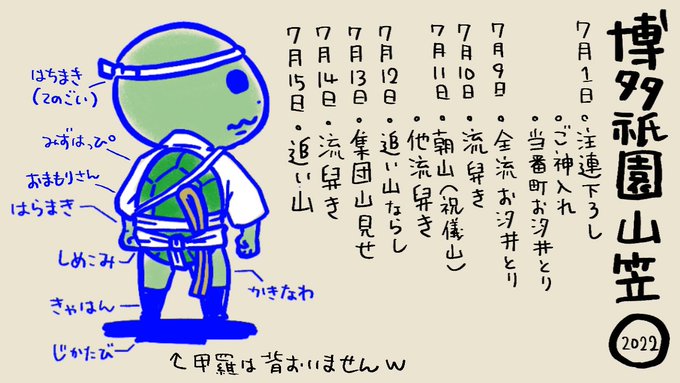 博多祇園山笠
2022
7月1日・注連下ろし
・ご神入れ
・当番町お汐井とり
7月9日・全流お汐井とり
7月10日・流舁き
7月11日・朝山(祝儀山)
・他流舁き
7月12日・追い山ならし
7月13日・集団山見せ
7月14日・流舁き
7月15日・追い山
はちまき
(てのごい)
みずはっぴ
おまもりさん
はらまき
しめこみ
きゃはん
じかたび
かきなわ
↑甲羅は背おいませんw